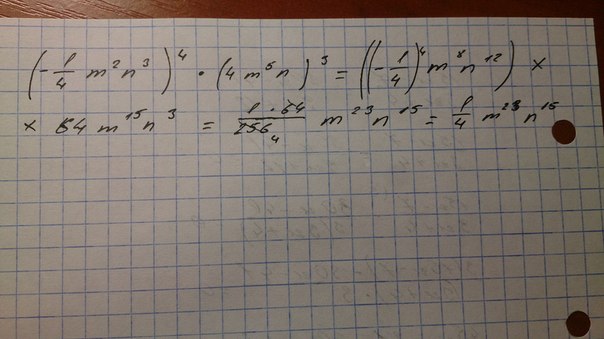 (-1/4 m²n³)⁴ · (4m⁵n)³ = ((-1/4)⁴ m⁸n¹²) ×
× 64 m¹⁵n³ = 1·64/256₄ m²³n¹⁵ = 1/4 m²³n¹⁵